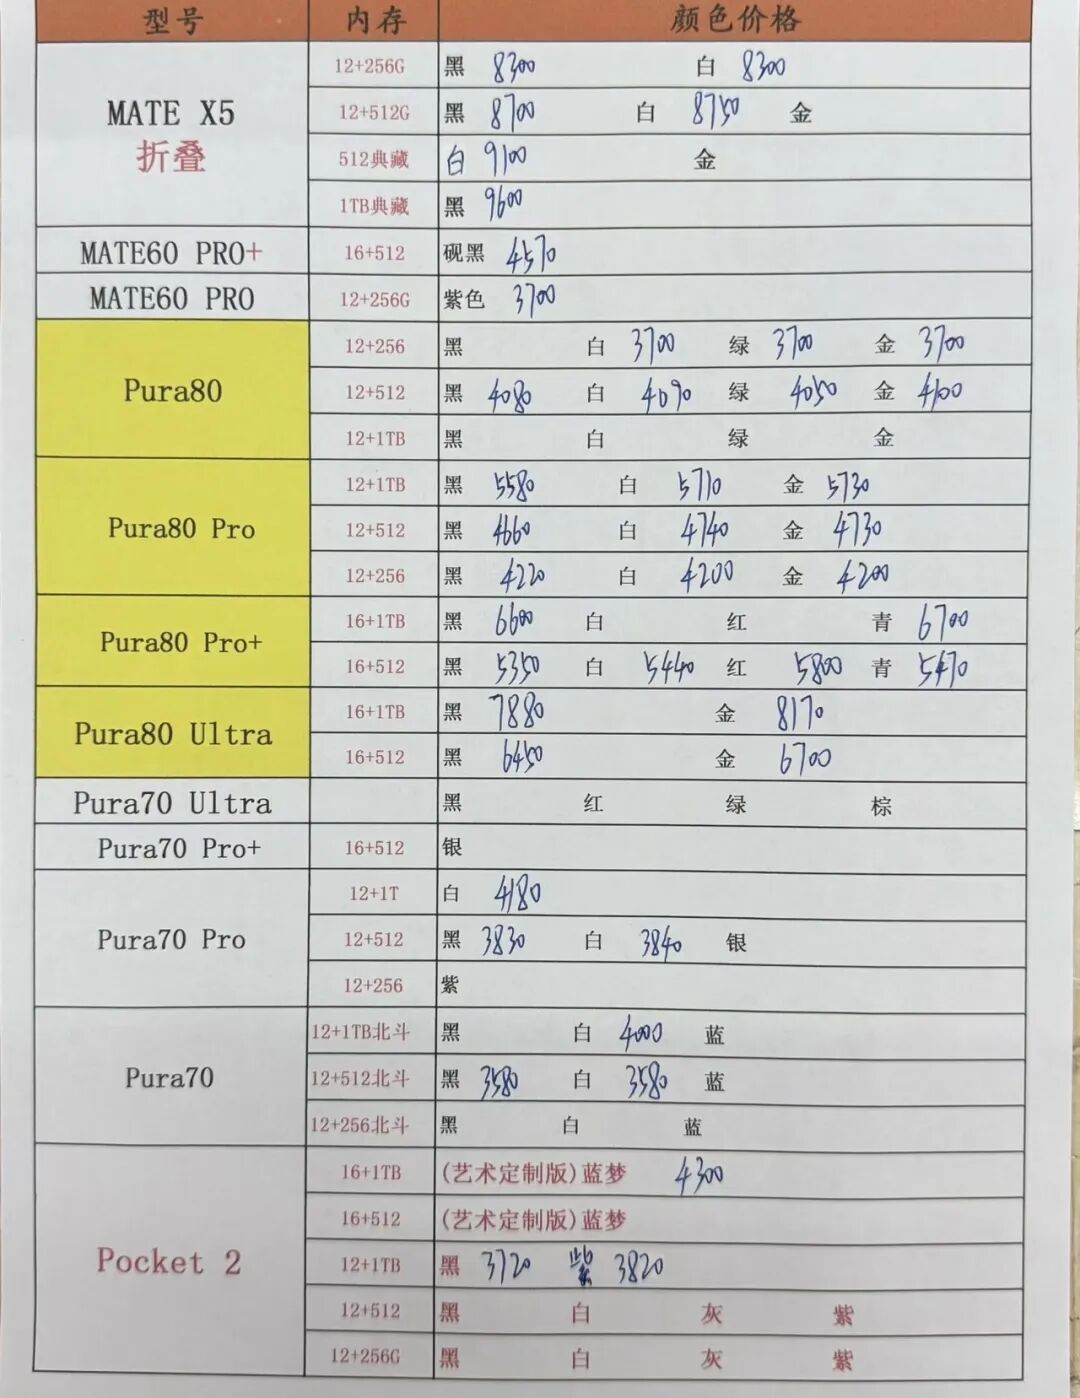 型号 内存 颜色价格
MATE X5 折叠
12+256G 黑 8300 白 8300
12+512G 黑 8700 白 8750 金
512典藏 白 9100 金
1TB典藏 黑 9600
MATE60 PRO+ 16+512 砚黑 4570
MATE60 PRO 12+256G 紫色 3700
Pura80
12+256 黑 白 3700 绿 3700 金 3700
12+512 黑 4080 白 4090 绿 4050 金 4100
12+1TB 黑 白 绿 金
Pura80 Pro
12+1TB 黑 5580 白 5710 金 5730
12+512 黑 4660 白 4740 金 4730
12+256 黑 4220 白 4200 金 4200
Pura80 Pro+
16+1TB 黑 6600 白 红 青 6700
16+512 黑 5350 白 5440 红 5800 青 5470
Pura80 Ultra
16+1TB 黑 7880 金 8170
16+512 黑 6450 金 6700
Pura70 Ultra 黑 红 绿 棕
Pura70 Pro+ 16+512 银
Pura70 Pro
12+1T 白 4180
12+512 黑 3830 白 3840 银
12+256 紫
Pura70
12+1TB北斗 黑 白 4000 蓝
12+512北斗 黑 3580 白 3580 蓝
12+256北斗 黑 白 蓝
Pocket 2
16+1TB (艺术定制版)蓝梦 4300
16+512 (艺术定制版)蓝梦
12+1TB 黑 3720 紫 3820
12+512 黑 白 灰 紫
12+256G 黑 白 灰 紫